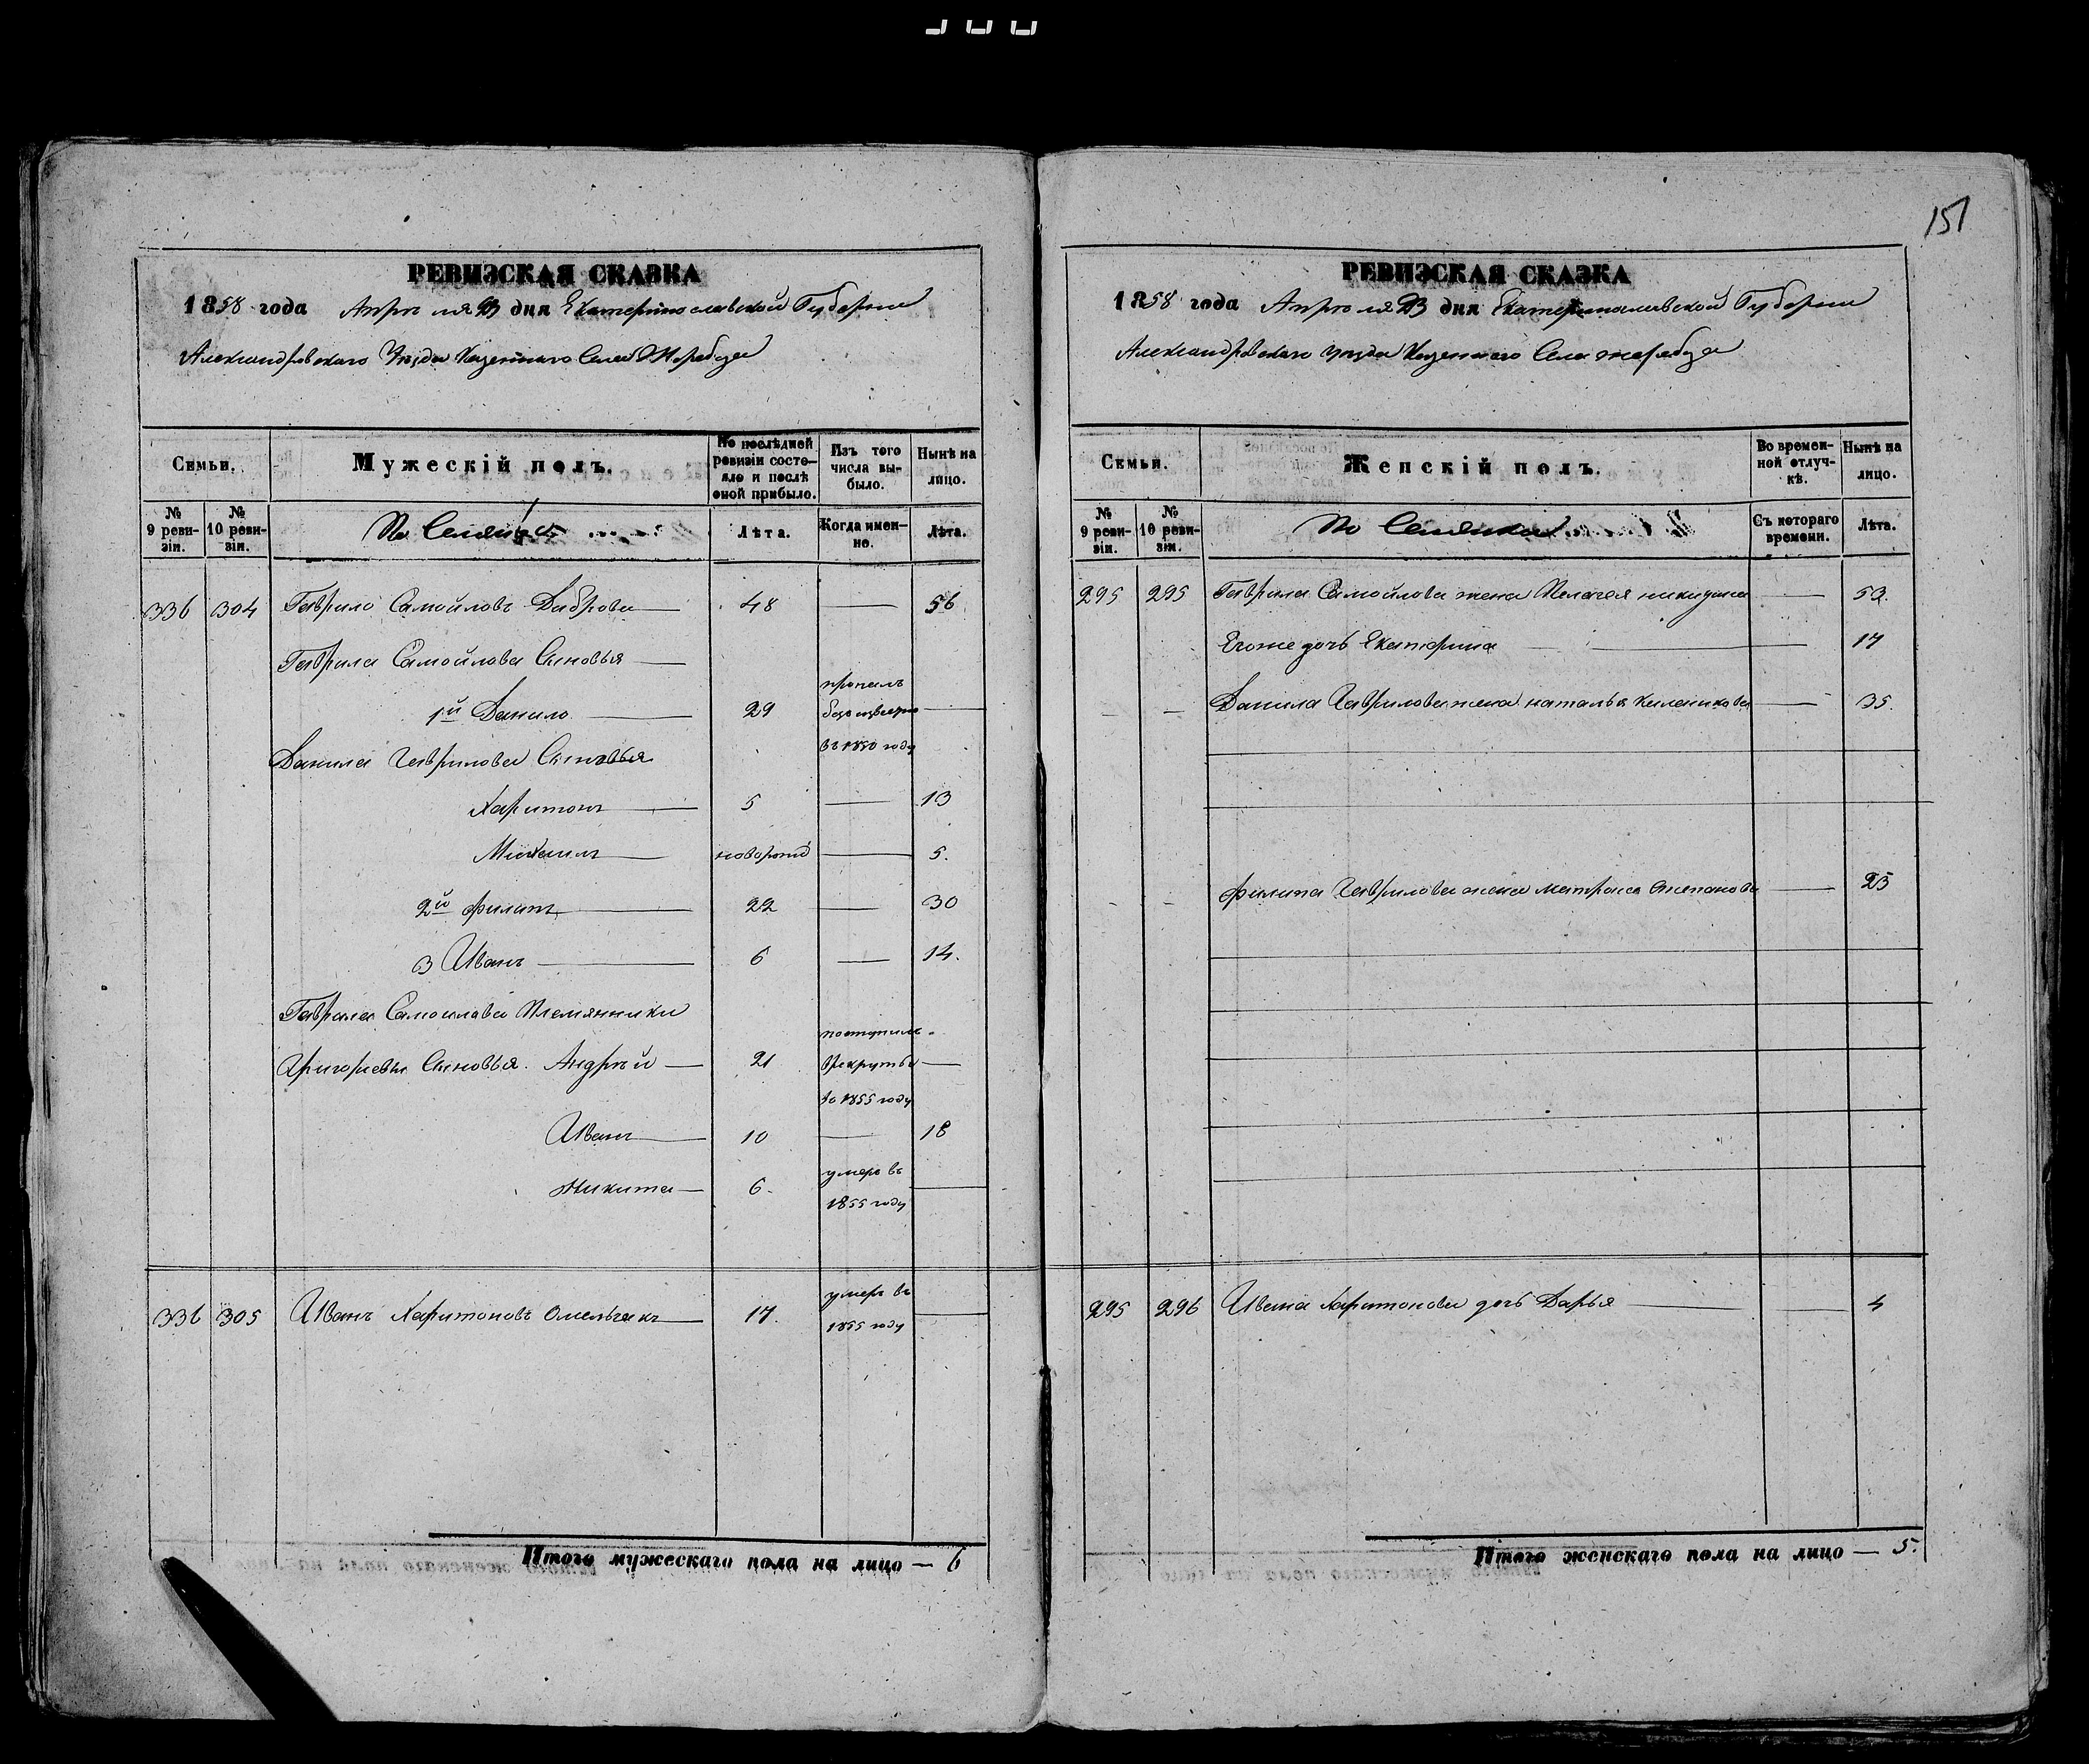 151
РЕВИЗСКАЯ СКАЗКА
1858 года Апреля 23 дня Екатеринославской Губернии
Александровскаго Уезда Казеннаго Села Жеребца
Семьи.
Мужескій полъ.
По послѣдней ревизіи состояло и послѣ оной прибыло.
Изъ того числа выбыло.
Нынѣ на лицо.
№ 9 ревизіи.
№ 10 ревизіи.
Лѣта.
Когда именно.
Лѣта.
336 304 Гаврило Самойловъ Даброва 48 56
Гаврила Самойлова Сыновья
1й Данило 29 пропалъ безъизвестно въ 1850 году
Данила Гаврилова Сыновья
Харитонъ 5 13
Михаилъ новорожд 5.
2й Филипъ 22 30
3 Иванъ 6 14.
Гаврила Самоилова Племянники
Григорьевы Сыновья. Андрей 21 поступилъ врекруты в 1855 году
Иванъ 10 18
Никита 6. умеръ въ 1855 году
336 305 Иванъ Харитоновъ Омельчакъ 17. умеръ въ 1855 году
Итого мужескаго пола на лицо — 6
РЕВИЗСКАЯ СКАЗКА
1858 года Апреля 23 дня Екатеринославской Губернии
Александровскаго уезда Казеннаго Села жеребца
Семьи.
Женскій полъ.
Во временной отлучкѣ.
Нынѣ на лицо.
№ 9 ревизіи.
№ 10 ревизіи.
Съ котораго времени.
Лѣта.
295 295 Гаврила Самойлова жена Пелагея 53.
Егоже дочь Екатерина 17
Данила Гаврилова жена наталья 35.
Филипа Гаврилова жена Матрона Степанова 25
295 296 Ивана Харитонова дочь Дарья 4
Итого женскаго пола на лицо — 5.